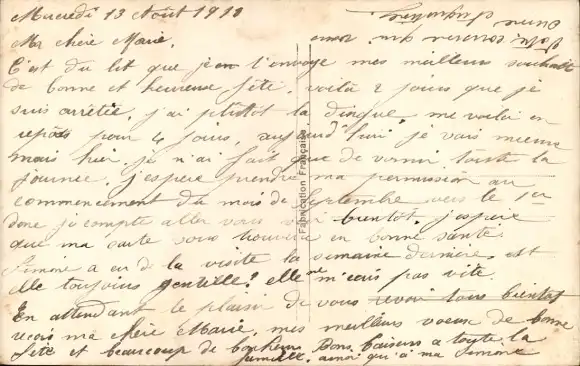 Mercredi 13 Août 1918
Ma chère Marie,
C'est du lit que je t'envoye mes meilleurs souhaits
de bonne et heureuse fête, voilà 2 jours que je
suis arrêtée, j'ai plutôt la dingue, me voilà en
repos pour 4 jours, aujourd'hui je vais mieux
mais hier je n'ai fait que de vomir toute la
journée, j'espère prendre ma permission au
commencement du mois de Septembre vers le
donc je compte aller vous voir bientôt, j'espère
que ma carte vous trouvera en bonne santé.
Simone a eu de la visite la semaine dernière, est
elle toujours gentille? elle ne m'écris pas vite.
En attendant le plaisir de vous revoir tous bientôt
reçois ma chère Marie, mes meilleurs voeux de bonne
fête et beaucoup de bonheur. Bons baisers à toute la
famille, ainsi qu'à ma Simone
Petit souvenir qui
Fabrication Française